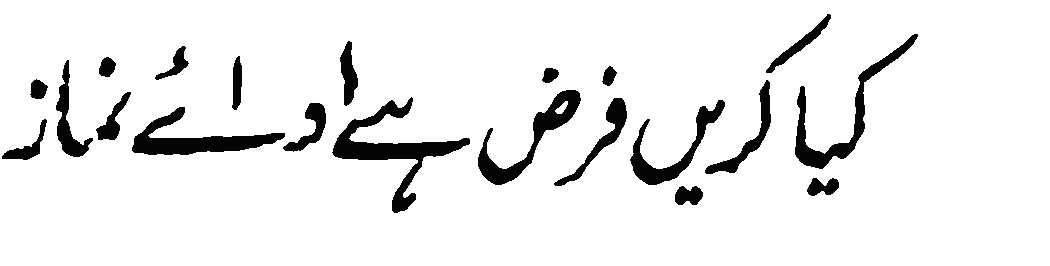 کیا کریں فرض ہے ادائے نماز